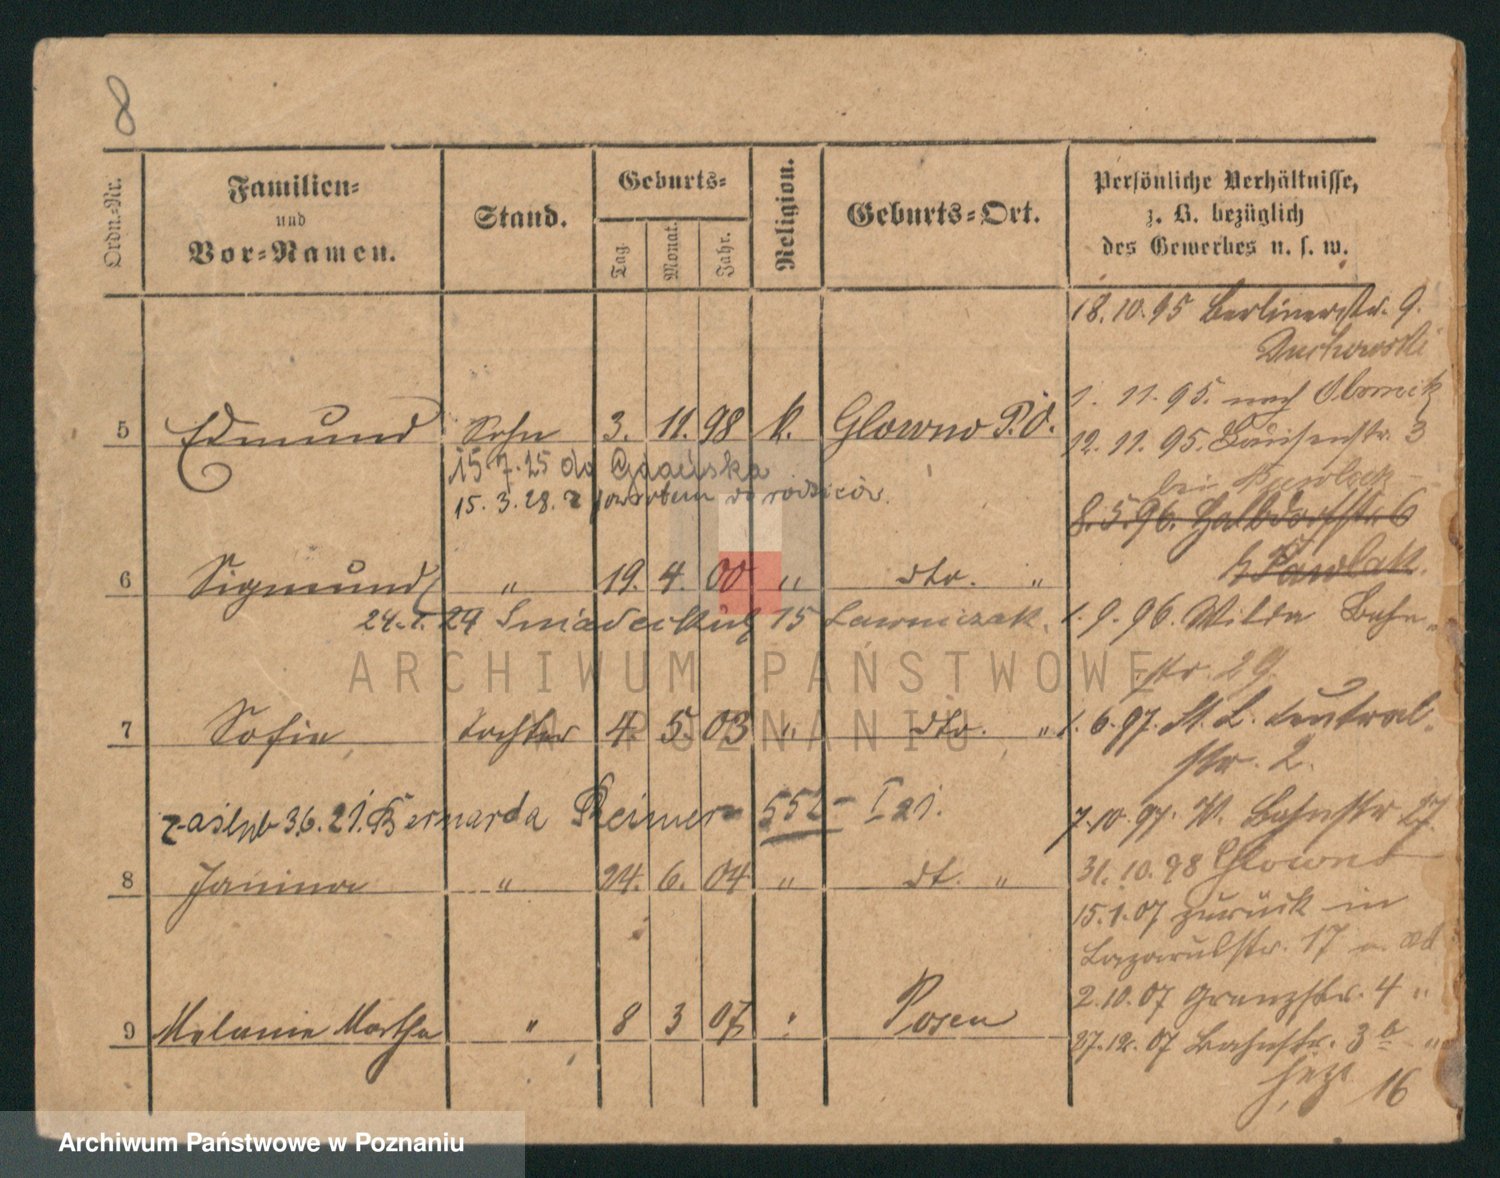 8
Ordn.-Nr.
Familien-
und
Vor-Namen.
Stand.
Geburts-
Tag.
Monat.
Jahr.
Religion.
Geburts-Ort.
Persönliche Verhältnisse,
z. B. bezüglich
des Gewerbes u. s. w.
18.10.95 Berlinerstr. 9.
1. 11. 95. nach Obornik
5 Edmund Sohn 3. 11. 98 k. Glowno P.O.
12. 11. 95. Louisenstr. 3
15.7.25 do Gdańska
bei
15. 3. 28. z powrotem do rodziców.
8. 5. 96. Halbdorfstr. 6
b Pawlak.
6 Sigmund " 19. 4. 00 " dto. "
24.1.29 Śniadeckich 15 Ławniczak.
1. 9. 96. Wilda Bahn-
str. 29.
7 Sofie Tochter 4. 5. 03 " dto. "
1. 6. 97. St. L. Central-
str. 2.
zaślub 3.6.21. Bernarda Reimer 552 - I 21.
7.10.97. W. Bahnstr 27.
8 Janina " 24. 6. 04 " dt. "
31. 10. 98 Glowno
15.1.07 zurück in
Lazarusstr. 17
2.10.07 Grenzstr. 4 "
9 Melanie Martha " 8 3 07 " Posen
27.12.07 Bahnstr. 3b "
16
ARCHIWUM PAŃSTWOWE
W POZNANIU
Archiwum Państwowe w Poznaniu